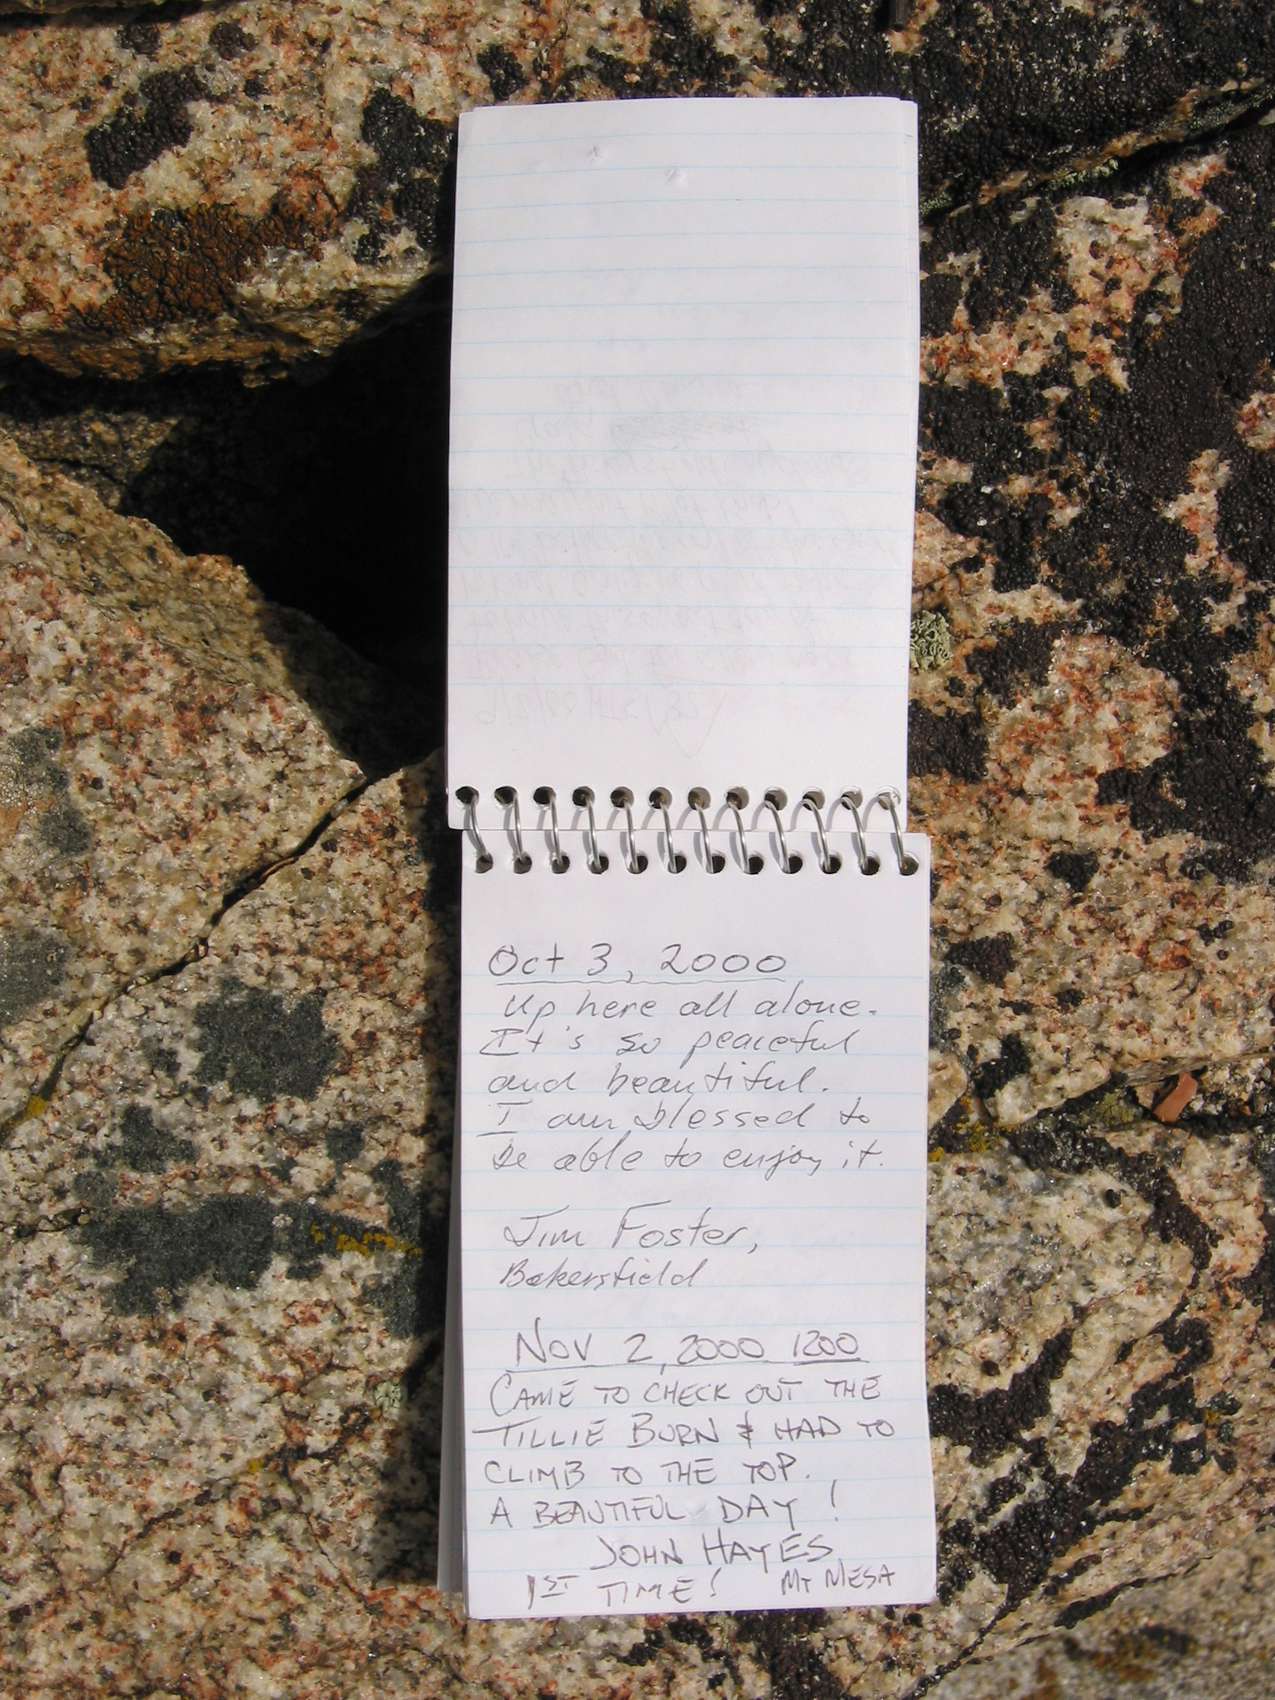 Oct 3, 2000
Up here all alone.
It's so peaceful
and beautiful.
I am blessed to
be able to enjoy it.
Jim Foster,
Bakersfield
NOV 2, 2000 1200
CAME TO CHECK OUT THE
TILLIE BURN & HAD TO
CLIMB TO THE TOP.
A BEAUTIFUL DAY!
JOHN HAYES
1ST TIME! MT MESA